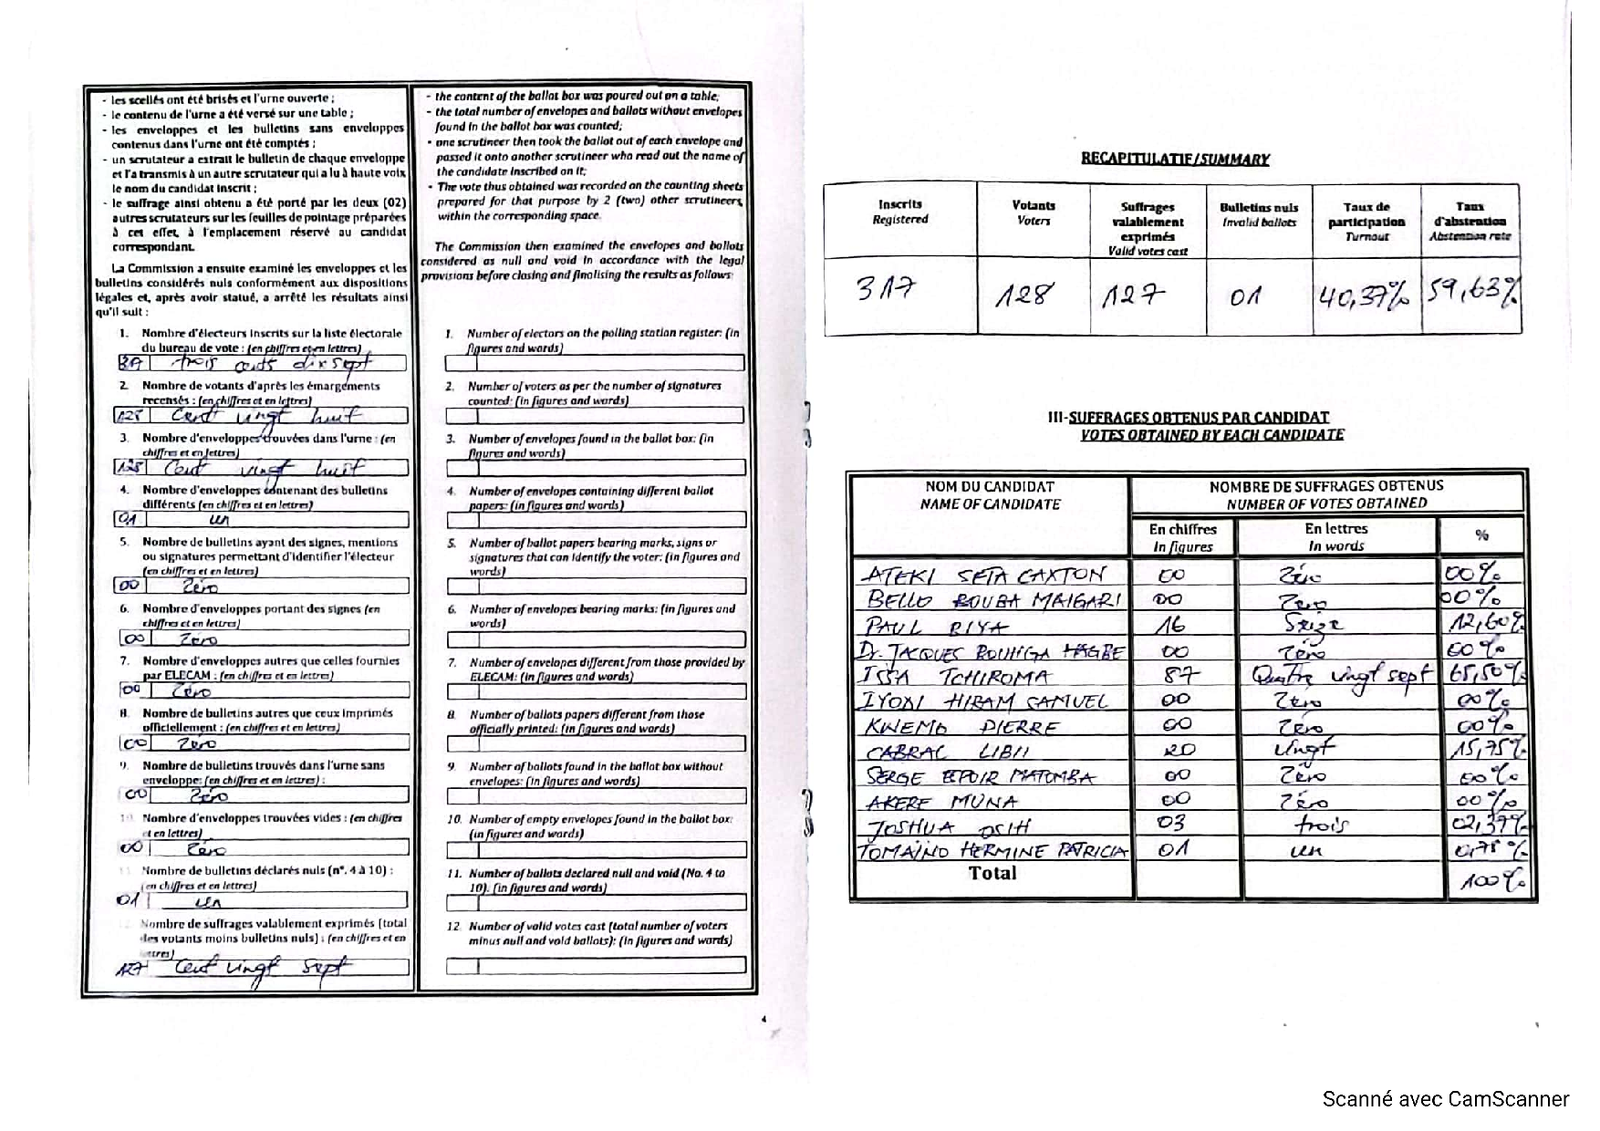 - les scellés ont été brisés et l'urne ouverte ;
- le contenu de l'urne a été versé sur une table ;
- les enveloppes et les bulletins sans enveloppes
contenus dans l'urne ont été comptés ;
- un scrutateur a extrait le bulletin de chaque enveloppe
et l'a transmis à un autre scrutateur qui a lu à haute voix
le nom du candidat inscrit ;
- le suffrage ainsi obtenu a été porté par les deux (02)
autres scrutateurs sur les feuilles de pointage préparées
à cet effet, à l'emplacement réservé au candidat
correspondant.
La Commission a ensuite examiné les enveloppes et les
bulletins considérés nuls conformément aux dispositions
légales et, après avoir statué, a arrêté les résultats ainsi
qu'il suit :
1. Nombre d'électeurs inscrits sur la liste électorale
du bureau de vote : (en chiffres et en lettres)
317 trois cents dix sept
2. Nombre de votants d'après les émargements
recensés : (en chiffres et en lettres)
128 Cent vingt huit
3. Nombre d'enveloppes trouvées dans l'urne : (en
chiffres et en lettres)
128 Cent vingt huit
4. Nombre d'enveloppes contenant des bulletins
différents (en chiffres et en lettres)
01 un
5. Nombre de bulletins ayant des signes, mentions
ou signatures permettant d'identifier l'électeur
(en chiffres et en lettres)
00 Zéro
6. Nombre d'enveloppes portant des signes (en
chiffres et en lettres)
00 Zéro
7. Nombre d'enveloppes autres que celles fournies
par ELECAM : (en chiffres et en lettres)
00 Zéro
8. Nombre de bulletins autres que ceux imprimés
officiellement : (en chiffres et en lettres)
00 Zéro
9. Nombre de bulletins trouvés dans l'urne sans
enveloppe: (en chiffres et en lettres) :
00 Zéro
10. Nombre d'enveloppes trouvées vides : (en chiffres
et en lettres)
00 Zéro
Nombre de bulletins déclarés nuls (n°. 4 à 10) :
(en chiffres et en lettres)
01 un
Nombre de suffrages valablement exprimés (total
des votants moins bulletins nuls) : (en chiffres et en
lettres)
127 Cent vingt sept
- the content of the ballot box was poured out on a table;
- the total number of envelopes and ballots without envelopes
found in the ballot box was counted;
- one scrutineer then took the ballot out of each envelope and
passed it onto another scrutineer who read out the name of
the candidate inscribed on it;
- The vote thus obtained was recorded on the counting sheets
prepared for that purpose by 2 (two) other scrutineers,
within the corresponding space.
The Commission then examined the envelopes and ballots
considered as null and void in accordance with the legal
provisions before closing and finalising the results as follows:
1. Number of electors on the polling station register: (in
figures and words)
2. Number of voters as per the number of signatures
counted: (in figures and words)
3. Number of envelopes found in the ballot box: (in
figures and words)
4. Number of envelopes containing different ballot
papers: (in figures and words)
5. Number of ballot papers bearing marks, signs or
signatures that can identify the voter: (in figures and
words)
6. Number of envelopes bearing marks: (in figures and
words)
7. Number of envelopes different from those provided by
ELECAM: (in figures and words)
8. Number of ballots papers different from those
officially printed: (in figures and words)
9. Number of ballots found in the ballot box without
envelopes: (in figures and words)
10. Number of empty envelopes found in the ballot box:
(in figures and words)
11. Number of ballots declared null and void (No. 4 to
10). (in figures and words)
12. Number of valid votes cast (total number of voters
minus null and void ballots): (in figures and words)
4
RECAPITULATIF/SUMMARY
Inscrits Votants Suffrages valablement exprimés Bulletins nuls Taux de participation Taux d'abstention
Registered Voters Valid votes cast Invalid ballots Turnout Abstention rate
317 128 127 01 40,37% 59,63%
III-SUFFRAGES OBTENUS PAR CANDIDAT
VOTES OBTAINED BY EACH CANDIDATE
NOM DU CANDIDAT NOMBRE DE SUFFRAGES OBTENUS
NAME OF CANDIDATE NUMBER OF VOTES OBTAINED
En chiffres En lettres %
In figures In words
ATEKI SETA CAXTON 00 Zéro 00%
BELLO BOUBA MAIGARI 00 Zero 00%
PAUL BIYA 16 Seize 12,60%
Dr. JACQUES BOUHIGA HAGBE 00 Zéro 00%
ISSA TCHIROMA 87 Quatre vingt sept 65,50%
IYODI HIRAM SAMUEL 00 Zéro 00%
KWEMO PIERRE 00 Zéro 00%
CABRAL LIBII 20 vingt 15,75%
SERGE ESPOIR MATOMBA 00 Zéro 00%
AKERE MUNA 00 Zéro 00%
JOSHUA OSIH 03 trois 02,37%
TOMAINO HERMINE PATRICIA 01 un 0,78%
Total 100%
Scanné avec CamScanner